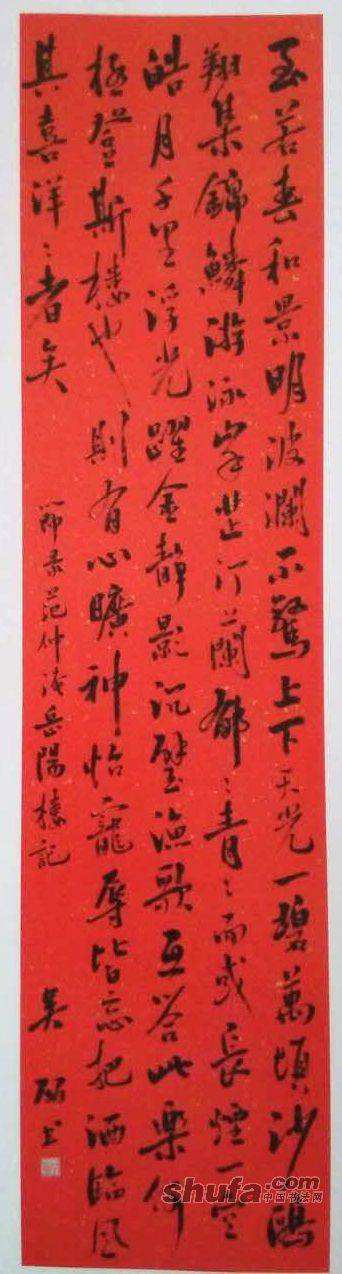 至若春和景明波瀾不驚上下天光一碧萬頃沙鷗
翔集錦鱗游泳岸芷汀蘭郁々青々而或長煙一空
皓月千里浮光躍金靜影沉璧漁歌互答此樂何
極登斯楼也則有心曠神怡寵辱皆忘把酒臨風
其喜洋々者矣
節录范仲淹岳陽楼記
吴 书
shufa.com
中国书法网